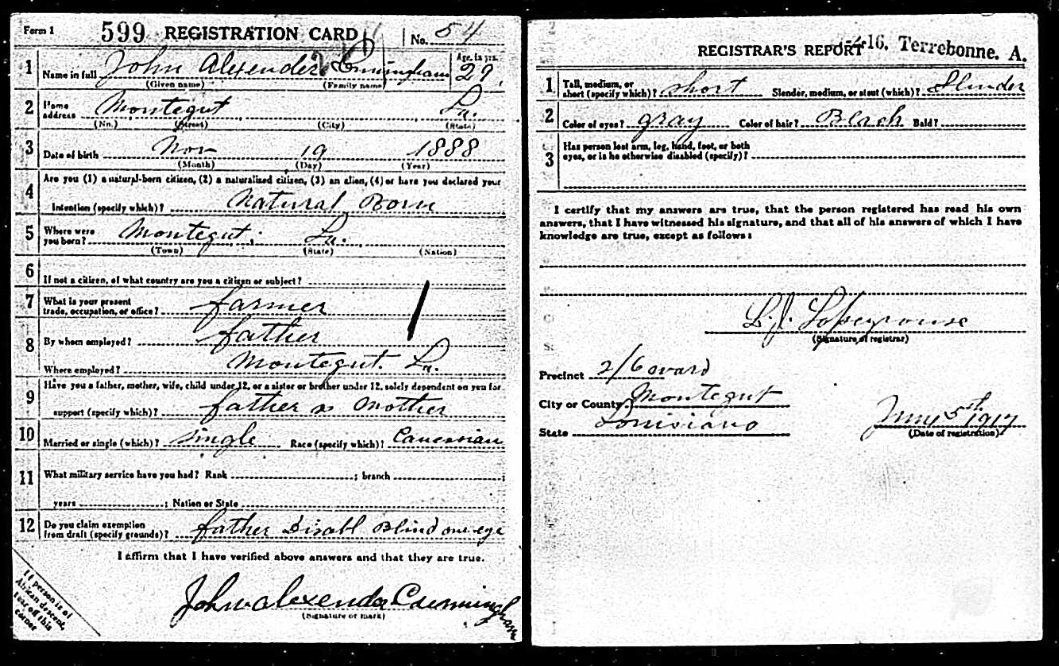 Form 1 599 REGISTRATION CARD No. 54
1 Name in full John Alexender Cunningham Age, in yrs. 29
(Given name) (Family name)
2 Home address Montegut La.
(No.) (Street) (City) (State)
3 Date of birth Nov 19 1888
(Month) (Day) (Year)
4 Are you (1) a natural-born citizen, (2) a naturalized citizen, (3) an alien, (4) or have you declared your
intention (specify which)? Natural Born
5 Where were you born? Montegut La.
(Town) (State) (Nation)
6 If not a citizen, of what country are you a citizen or subject?
7 What is your present trade, occupation, or office? farmer
8 By whom employed? father
Where employed? Montegut. La.
9 Have you a father, mother, wife, child under 12, or a sister or brother under 12, solely dependent on you for
support (specify which)? father & Mother
10 Married or single (which)? single Race (specify which)? Caucasian
11 What military service have you had? Rank ; branch ;
years ; Nation or State
12 Do you claim exemption from draft (specify grounds)? father Disabl Blind one eye
I affirm that I have verified above answers and that they are true.
John alexender Cunningham
(Signature or mark)
If person is of
African descent,
tear off this
corner
REGISTRAR'S REPORT 16. Terrebonne. A.
1 Tall, medium, or short (specify which)? short Slender, medium, or stout (which)? Slender
2 Color of eyes? gray Color of hair? Black Bald?
3 Has person lost arm, leg, hand, foot, or both
eyes, or is he otherwise disabled (specify)?
I certify that my answers are true, that the person registered has read his own
answers, that I have witnessed his signature, and that all of his answers of which I have
knowledge are true, except as follows:
(Signature of registrar)
Precinct 2/6 ward
City or County Montegut
State Louisiana
June 5th 1917
(Date of registration)